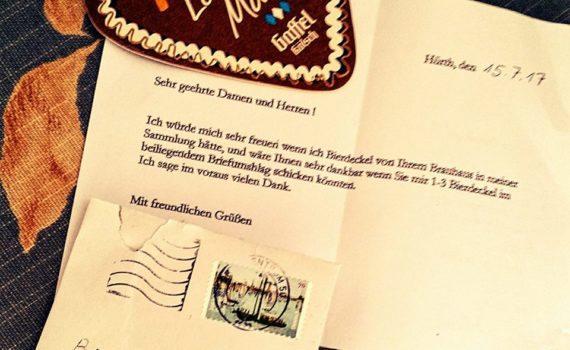 Gaffel
Kölsch
Hürth, den 15.7.17
Sehr geehrte Damen und Herren !
Ich würde mich sehr freuen wenn ich Bierdeckel von Ihrem Brauhaus in meiner
Sammlung hätte, und wäre Ihnen sehr dankbar wenn Sie mir 1-3 Bierdeckel im
beiliegendem Briefumshlag schicken könnten.
Ich sage im voraus vielen Dank.
Mit freundlichen Grüßen